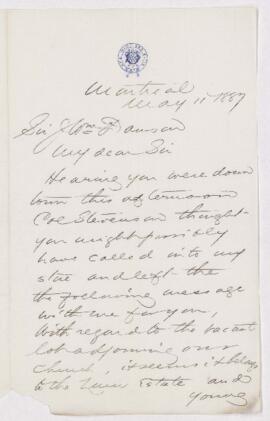 Montreal
May 11 1887
Sir J Wm Dawson
My dear Sir
Hearing you were down
town this afternoon
Col Stevenson thought
you might possibly
have called into my
store and left the
the following message
with me for you,
With regard to the vacant
lot adjoining our
Church, it seems it belongs
to the Estate and
Young